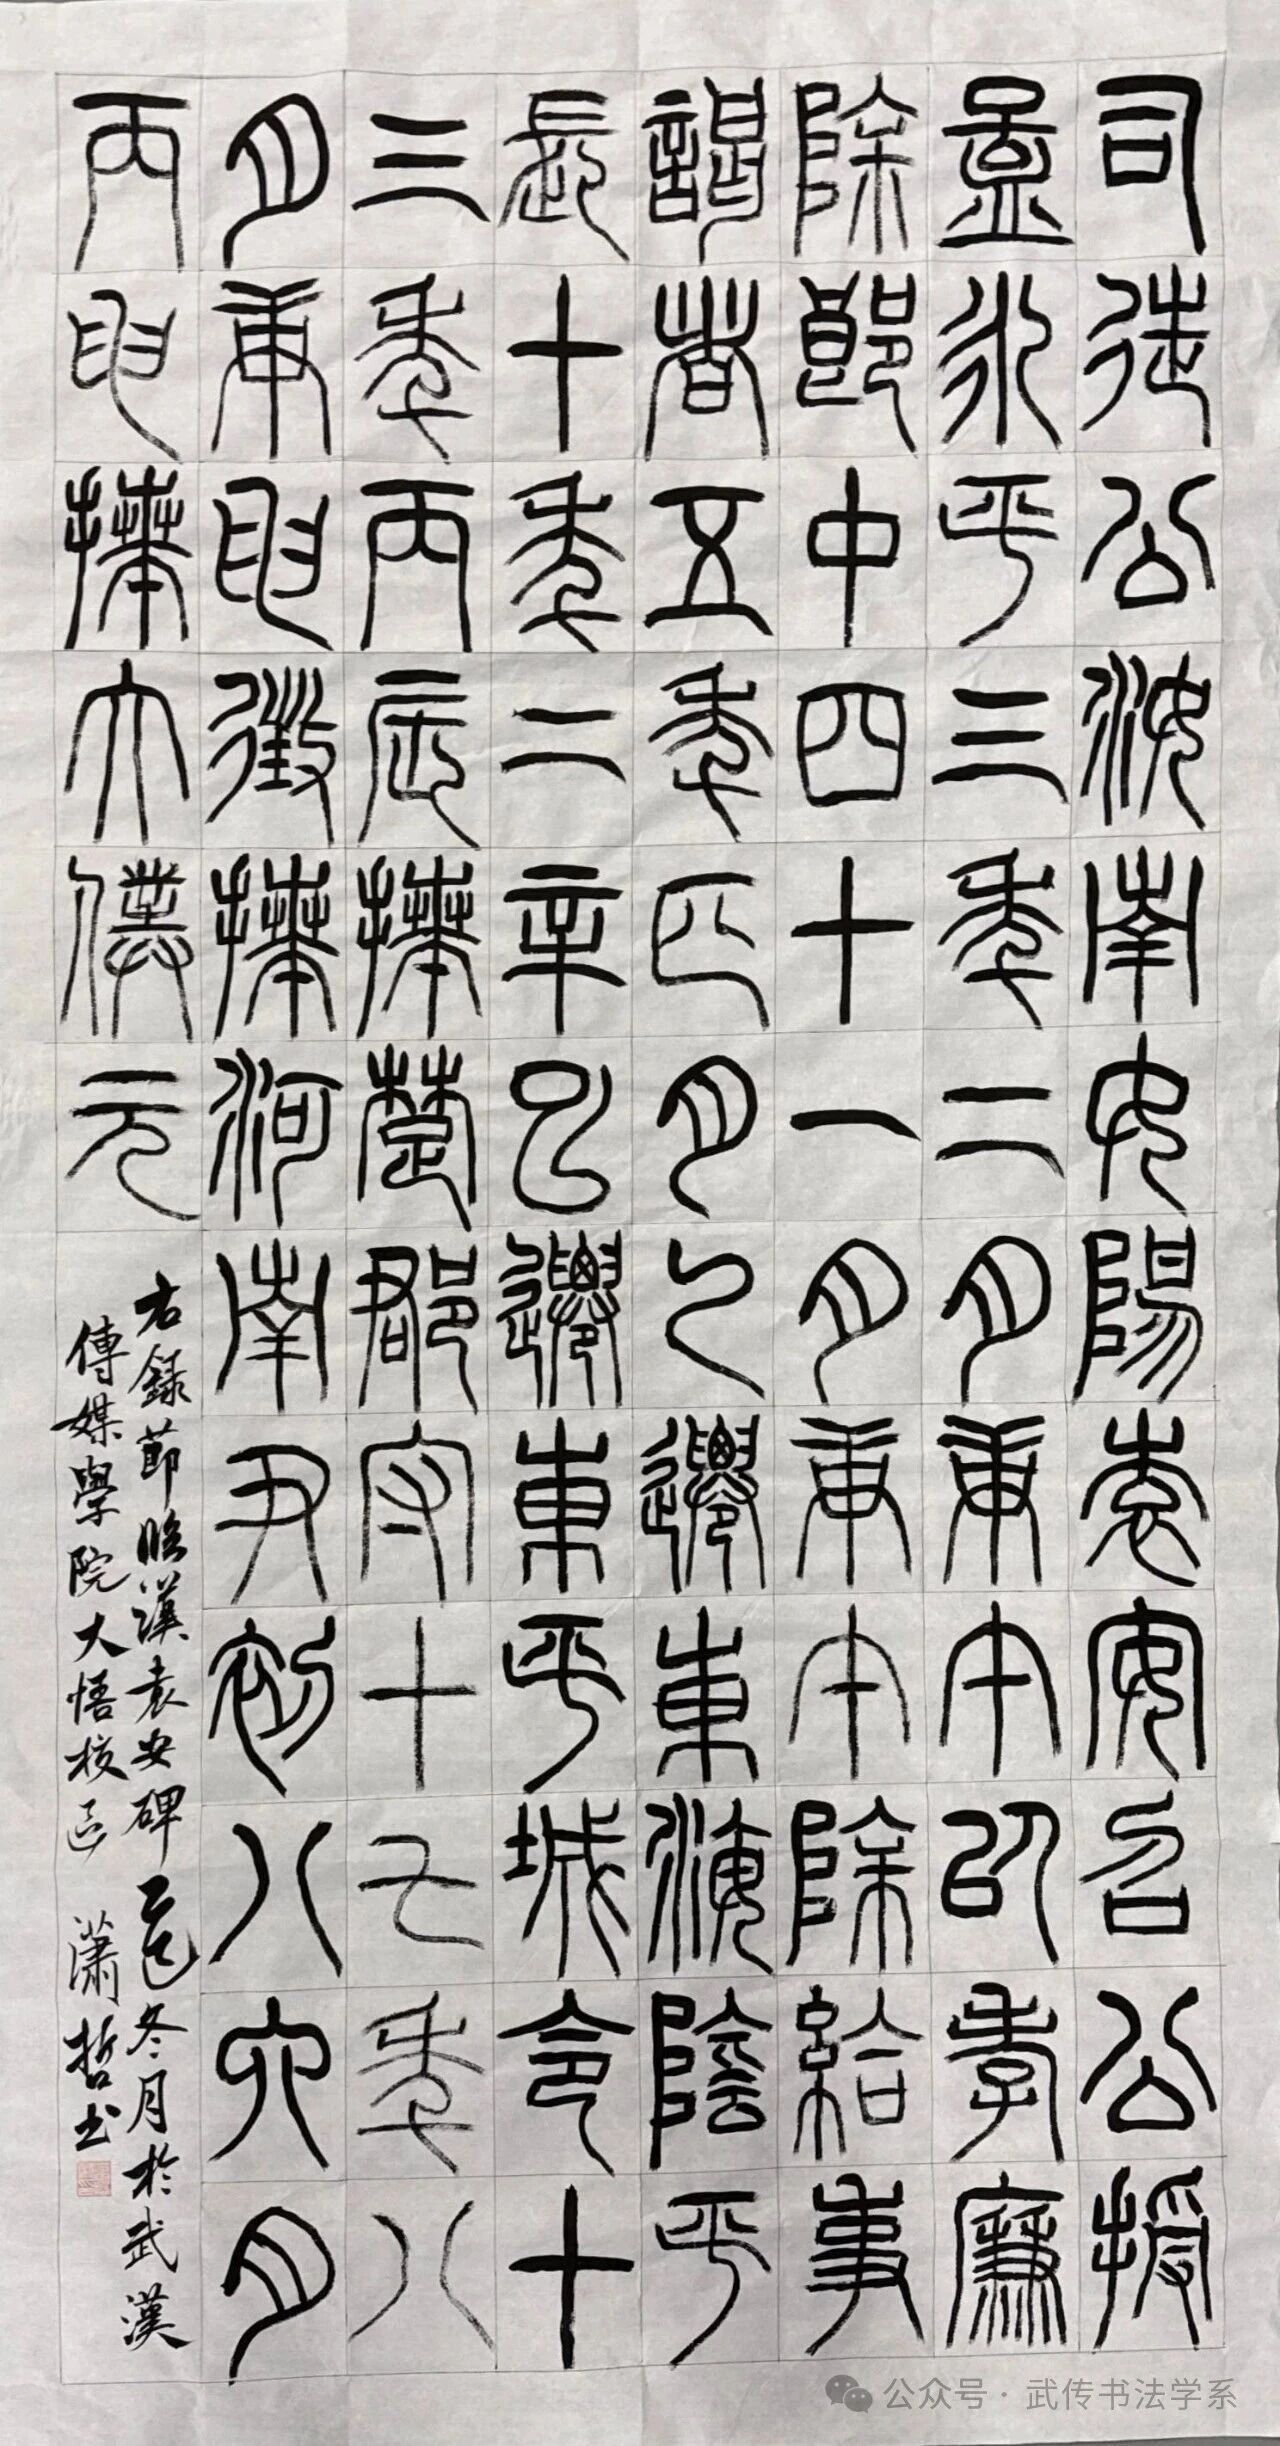 司徒公汝南女陽袁安召公授
永平三年二月庚午以孝廉
除郎中四十一月庚午除給事
謁者五年四月乙遷東海陰平
長十年二辛巳遷東平城令十
三年丙辰拜楚郡守十七年八
月庚申徵拜河南尹初八六月
丙申拜大僕元
右録節臨漢袁安碑乙巳冬月於武漢
傳媒學院大悟校區 瀟哲書
公众号·武传书法学系